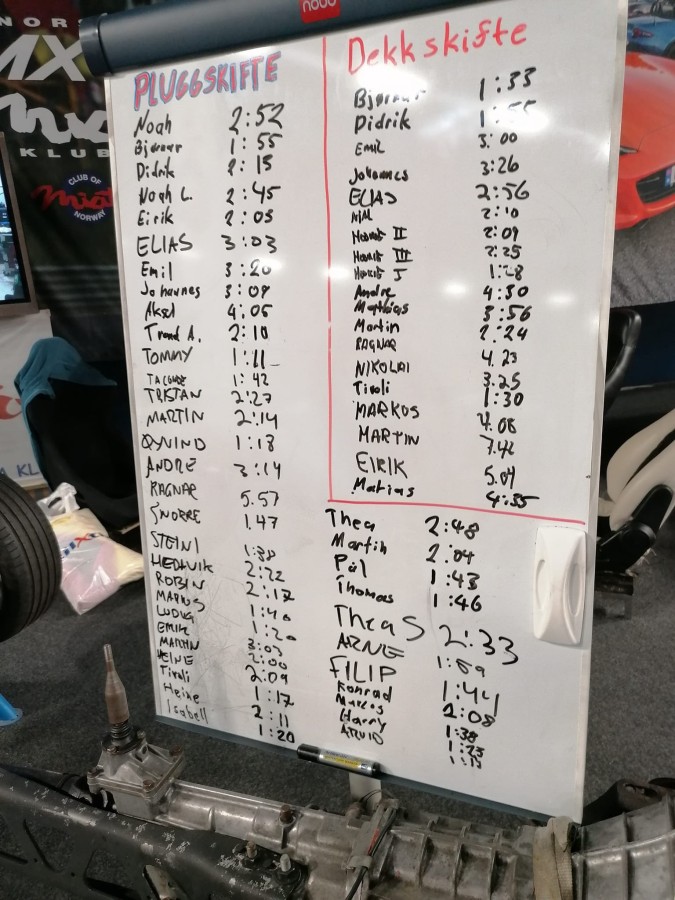 nobo
NORS
MX
Mia
KLUB
CLUB OF
Miata
NORWAY
PLUGGSKIFTE
Noah 2:52
Bjørnar 1:55
Didrik 2:15
Noah L. 2:45
Eirik 2:05
ELIAS 3:03
Emil 3:20
Johannes 3:09
Aksel 4:05
Trond A. 2:10
TOMMY 1:11
1:42
TRISTAN 2:27
MARTIN 2:14
ØYVIND 1:13
ANDRE 3:14
RAGNAR 5.57
SNORRE 1.47
STEINI 1:38
HEDNVIK 2:22
ROBIN 2:12
MARKUS
LUDVIG
EMIL 1:20
MARTIN 3:03
HEINE 2:00
Tiroli 2:09
Heine 1:17
Isabell 2:11
1:20
Dekkskifte
Bjørnar 1:33
Didrik 1:55
Emil 3:00
Johannes 3:26
ELIAS 2:56
2:10
II 2:09
III 2:25
I 1:28
Andre 4:30
Mathias 3:56
Martin 2:24
RAGNAR 4.23
NIKOLAI 3.25
Tiroli 1:30
MARKUS 4.08
MARTIN
EIRIK 5.09
Matias 4:35
Thea 2:48
Martin 2:04
Pål 1:43
Thomas 1:46
Thea S 2:33
ARNE 1:59
FILIP 1:44
Konrad 2:08
Marcos 1:38
Harry 1:23
ARVID